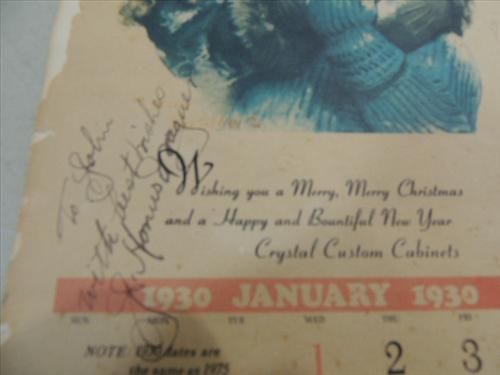 To John
with best wishes
J. Honus Wagner
Wishing you a Merry, Merry Christmas
and a Happy and Bountiful New Year
Crystal Custom Cabinets
1930 JANUARY 1930
SUN MON TUE WED THU FRI
NOTE: 1930 dates are
the same as 1975
2 3